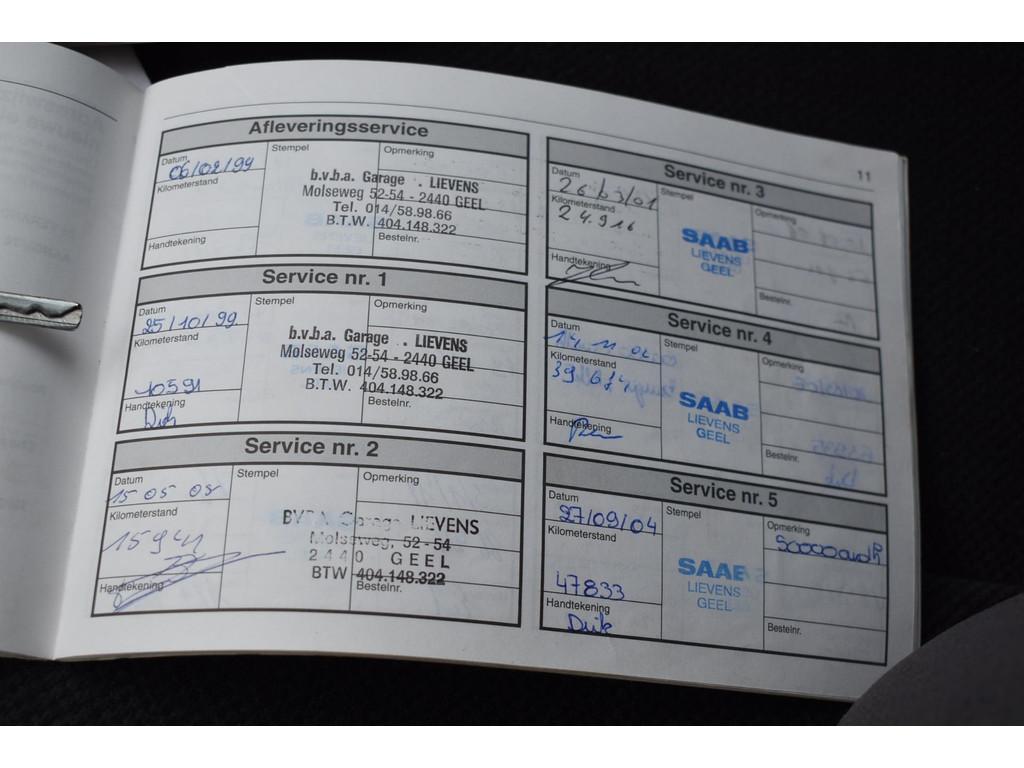 11
Afleveringsservice
Datum
06/02/99
Stempel
Opmerking
Kilometerstand
b.v.b.a. Garage . LIEVENS
Molseweg 52-54 - 2440 GEEL
Tel. 014/58.98.66
B.T.W. 404.148.322
Handtekening
Bestelnr.
Service nr. 1
Datum
25/10/99
Stempel
Opmerking
Kilometerstand
10591
b.v.b.a. Garage . LIEVENS
Molseweg 52-54 - 2440 GEEL
Tel. 014/58.98.66
B.T.W. 404.148.322
Handtekening
Bestelnr.
Service nr. 2
Datum
15 05
Stempel
Opmerking
Kilometerstand
15941
BVBA Garage LIEVENS
Molseweg, 52-54
2440 GEEL
BTW 404.148.322
Handtekening
Bestelnr.
Service nr. 3
Datum
26/03/01
Stempel
Opmerking
Kilometerstand
24.916
SAAB
LIEVENS
GEEL
Handtekening
Bestelnr.
Service nr. 4
Datum
Stempel
Opmerking
Kilometerstand
39 674
SAAB
LIEVENS
GEEL
Handtekening
Bestelnr.
Service nr. 5
Datum
27/09/04
Stempel
Opmerking
Kilometerstand
47833
SAAB
LIEVENS
GEEL
Handtekening
Dirk
Bestelnr.